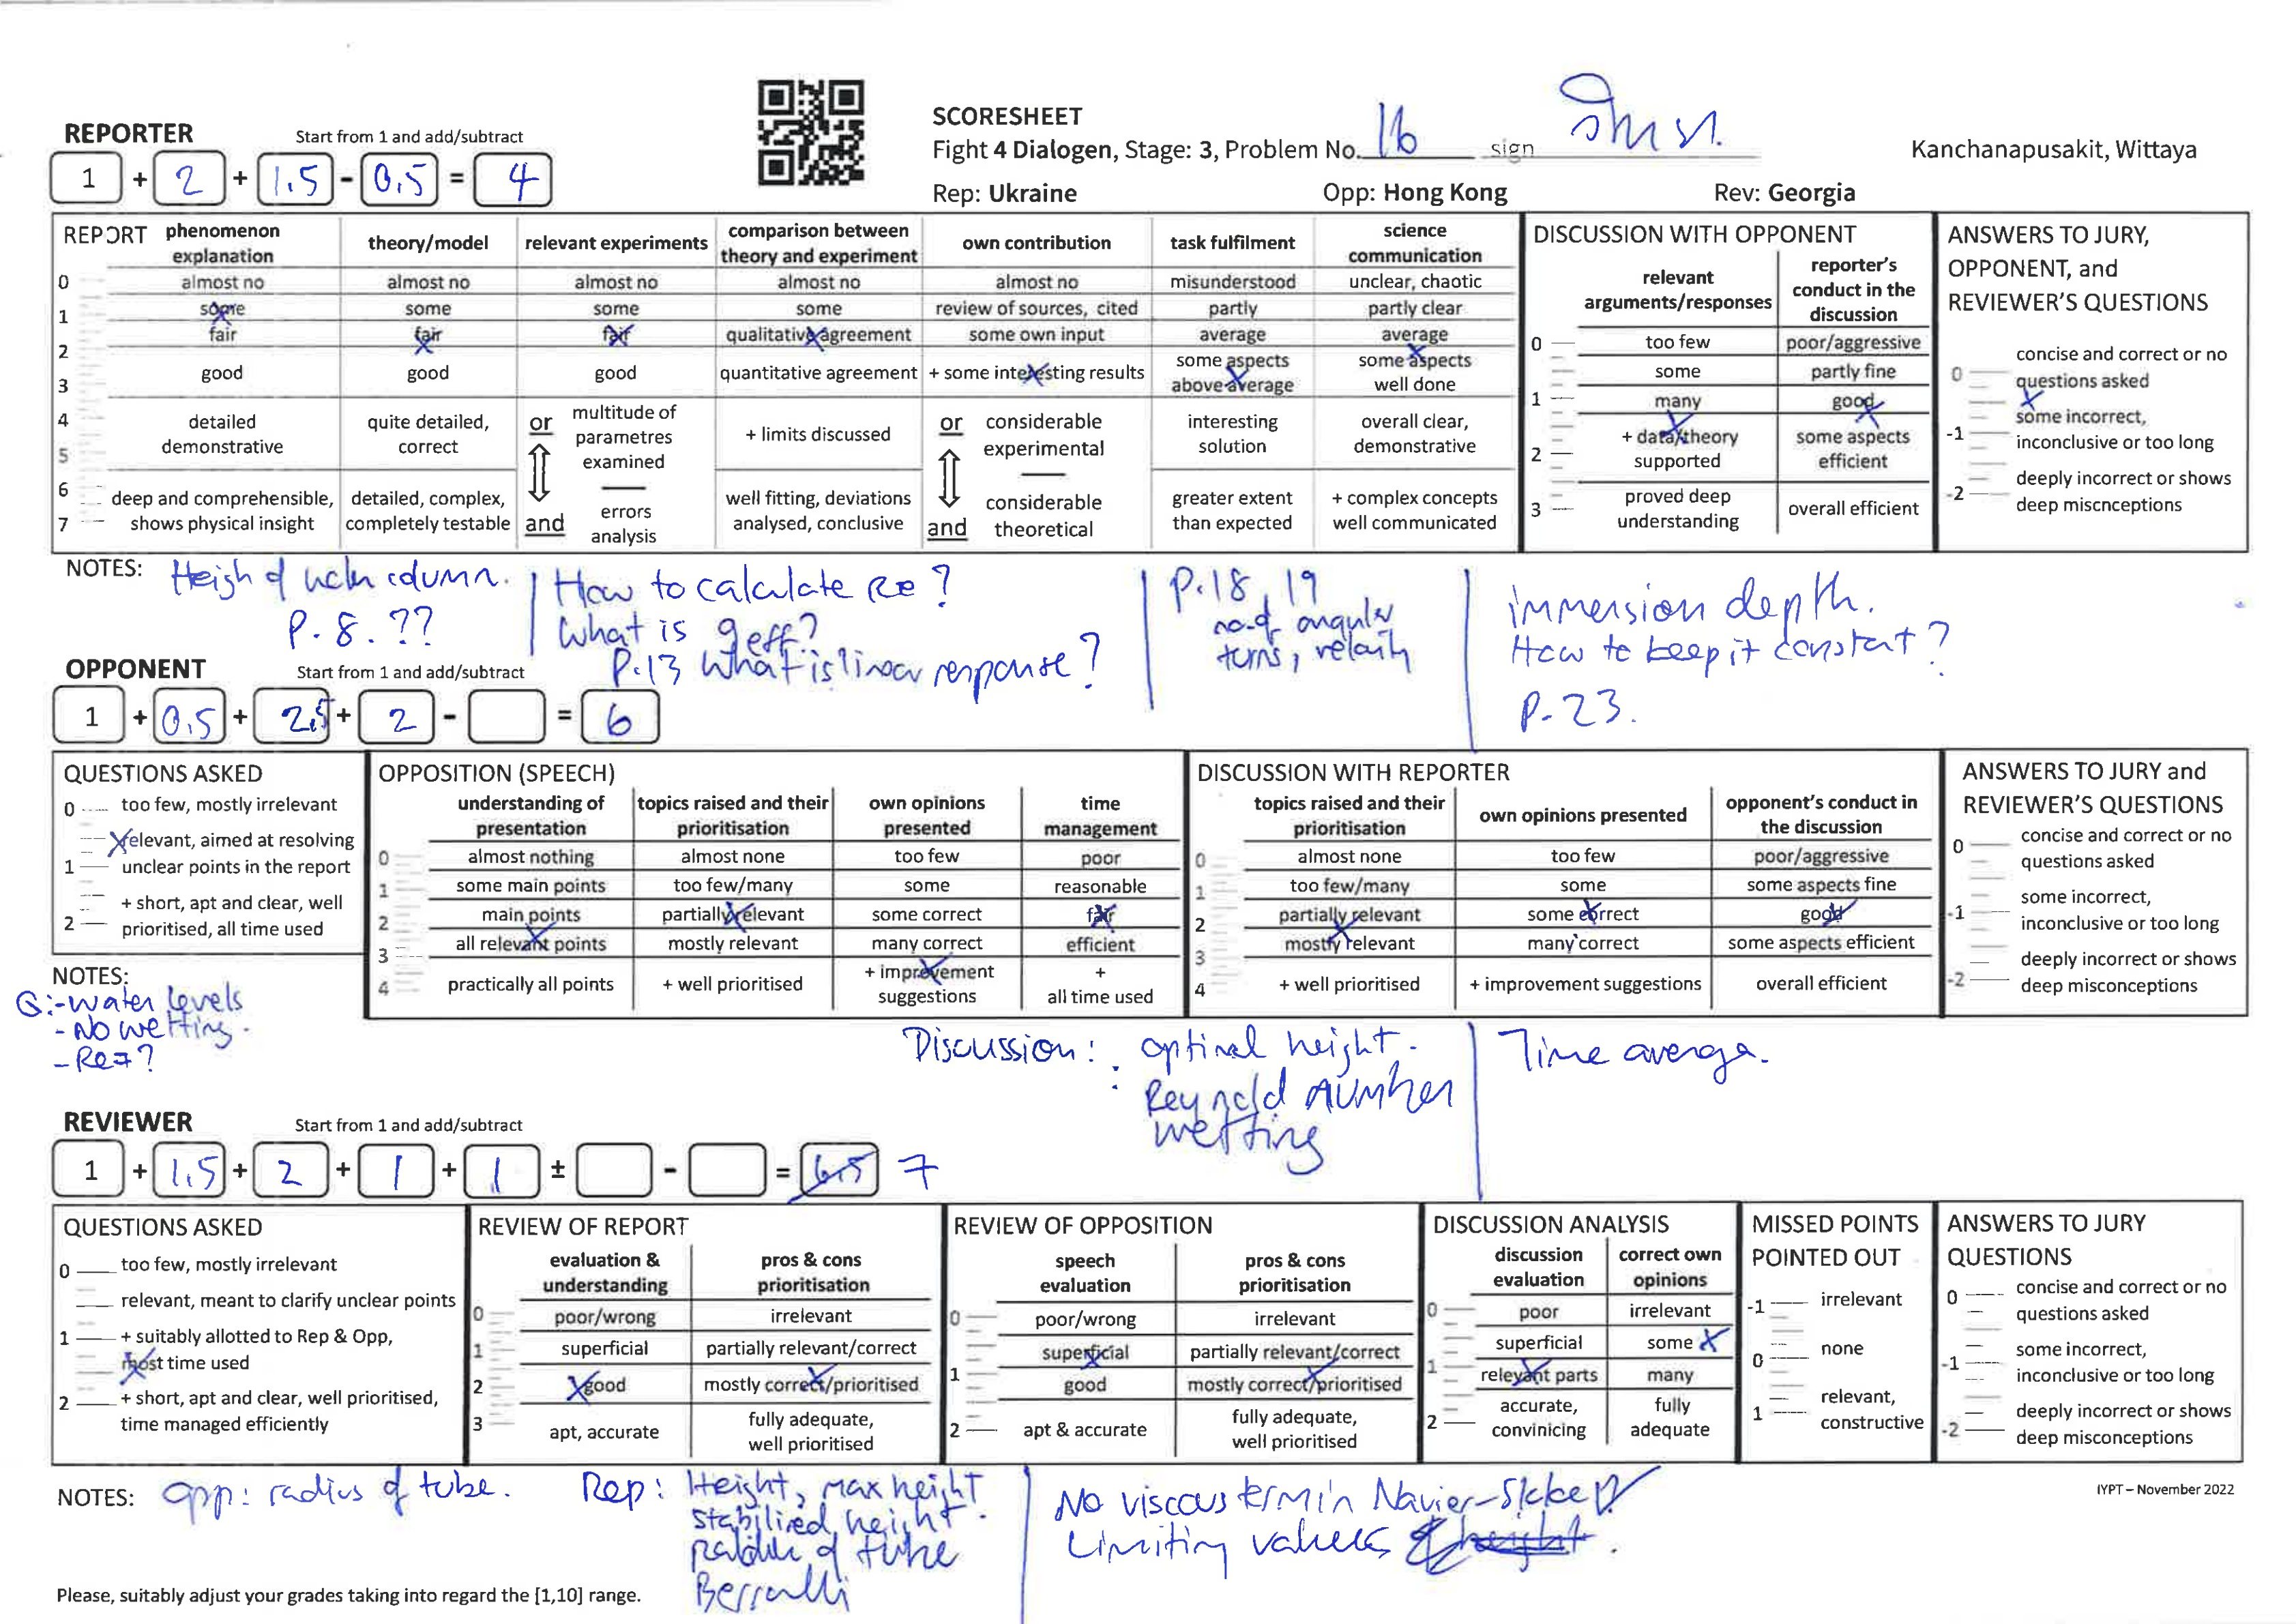 SCORESHEET
Fight 4 Dialogen, Stage: 3, Problem No. 16 sign
Kanchanapusakit, Wittaya
Rep: Ukraine Opp: Hong Kong Rev: Georgia
REPORTER Start from 1 and add/subtract
1 + 2 + 1.5 - 0.5 = 4
REPORT
phenomenon explanation
theory/model
relevant experiments
comparison between theory and experiment
own contribution
task fulfilment
science communication
0 almost no almost no almost no almost no almost no misunderstood unclear, chaotic
1 some some some some review of sources, cited partly partly clear
2 fair fair fair qualitative agreement some own input average average
3 good good good quantitative agreement + some interesting results some aspects above average some aspects well done
4 detailed demonstrative quite detailed, correct or multitude of parametres examined + limits discussed or considerable experimental interesting solution overall clear, demonstrative
5
6 deep and comprehensible, shows physical insight detailed, complex, completely testable and errors analysis well fitting, deviations analysed, conclusive and considerable theoretical greater extent than expected + complex concepts well communicated
7
DISCUSSION WITH OPPONENT
relevant arguments/responses
reporter's conduct in the discussion
0 too few poor/aggressive
some partly fine
1 many good
2 + data/theory supported some aspects efficient
3 proved deep understanding overall efficient
ANSWERS TO JURY, OPPONENT, and REVIEWER'S QUESTIONS
0 concise and correct or no questions asked
-1 some incorrect, inconclusive or too long
-2 deeply incorrect or shows deep miscnceptions
NOTES:
Heigh of column.
P. 8. ??
How to calculate Re?
What is geff?
P.13 What is linear response?
P.18, 19
no. of angular
turns, velocity
immersion depth.
How to keep it constant?
P. 23.
OPPONENT Start from 1 and add/subtract
1 + 0.5 + 2.5 + 2 - = 6
QUESTIONS ASKED
0 too few, mostly irrelevant
relevant, aimed at resolving
1 unclear points in the report
+ short, apt and clear, well
2 prioritised, all time used
OPPOSITION (SPEECH)
understanding of presentation
topics raised and their prioritisation
own opinions presented
time management
0 almost nothing almost none too few poor
1 some main points too few/many some reasonable
2 main points partially relevant some correct fair
3 all relevant points mostly relevant many correct efficient
4 practically all points + well prioritised + improvement suggestions + all time used
DISCUSSION WITH REPORTER
topics raised and their prioritisation
own opinions presented
opponent's conduct in the discussion
0 almost none too few poor/aggressive
1 too few/many some some aspects fine
2 partially relevant some correct good
3 mostly relevant many correct some aspects efficient
4 + well prioritised + improvement suggestions overall efficient
ANSWERS TO JURY and REVIEWER'S QUESTIONS
0 concise and correct or no questions asked
-1 some incorrect, inconclusive or too long
-2 deeply incorrect or shows deep misconceptions
NOTES:
Q:- Water levels
- No wetting.
- Re = ?
Discussion: optimal height.
Reynold number
wetting
Time average.
REVIEWER Start from 1 and add/subtract
1 + 1.5 + 2 + 1 + 1 ± - = 6.5 7
QUESTIONS ASKED
0 too few, mostly irrelevant
relevant, meant to clarify unclear points
1 + suitably allotted to Rep & Opp,
most time used
2 + short, apt and clear, well prioritised,
time managed efficiently
REVIEW OF REPORT
evaluation & understanding
pros & cons prioritisation
0 poor/wrong irrelevant
1 superficial partially relevant/correct
2 good mostly correct/prioritised
3 apt, accurate fully adequate, well prioritised
REVIEW OF OPPOSITION
speech evaluation
pros & cons prioritisation
0 poor/wrong irrelevant
superficial partially relevant/correct
1 good mostly correct/prioritised
2 apt & accurate fully adequate, well prioritised
DISCUSSION ANALYSIS
discussion evaluation
correct own opinions
0 poor irrelevant
superficial some
1 relevant parts many
2 accurate, convinicing fully adequate
MISSED POINTS POINTED OUT
-1 irrelevant
0 none
1 relevant, constructive
ANSWERS TO JURY QUESTIONS
0 concise and correct or no questions asked
-1 some incorrect, inconclusive or too long
-2 deeply incorrect or shows deep misconceptions
NOTES:
opp: radius of tube.
Rep: Height, max height
stabilized height.
of tube
No viscous term in Navier-
Limiting values
IYPT – November 2022
Please, suitably adjust your grades taking into regard the [1,10] range.